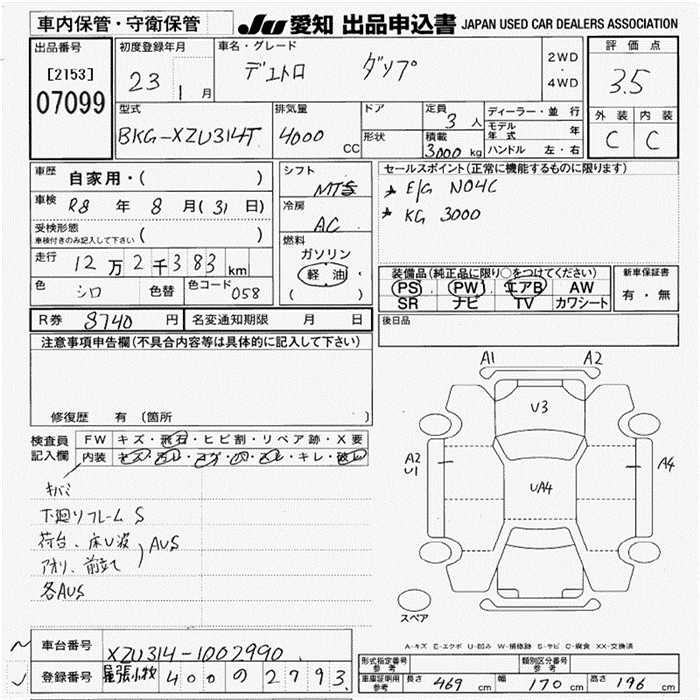 車内保管・守衛保管
JU 愛知 出品申込書 JAPAN USED CAR DEALERS ASSOCIATION
出品番号
[2153]
07099
初度登録年月
23 1 月
車名・グレード
デュトロ ダンプ
2WD
・
4WD
評価点
3.5
外装 内装
C C
型式
BKG-XZU314T
排気量
4000 CC
ドア
形状
定員
3 人
積載
3000 kg
ディーラー・並行
モデル年式 年
ハンドル 左・右
車歴 自家用・( )
車検 R8 年 8 月(31 日)
受検形態
車検付きのみ記入して下さい ( )
走行 12 万 2 千 3 8 3 km
色 シロ 色替 色コード 058
シフト
MT5
冷房
AC
燃料
ガソリン
軽油
( )
セールスポイント(正常に機能するものに限ります)
E/G N04C
KG 3000
装備品(純正品に限り○をつけてください)
PS PW エアB AW
SR ナビ TV カワシート
新車保証書
有・無
R券 8740 円 名変通知期限 月 日
後日品
注意事項申告欄(不具合内容等は具体的に記入して下さい)
修復歴 有 (箇所
検査員
記入欄
FW キズ・飛石・ヒビ割・リペア跡・X要
内装 キズ・汚レ・コゲ・穴・スレ・キレ・破レ
キバミ
下廻リフレームS
荷台、床U波
アオリ、前立て
AUS
各AUS
A1 A2
U3
A2
U1
UA4
A4
スペア
A-キズ E-エクボ U-凹み W-補修跡 S-サビ C-腐食 XX-交換済
車台番号 XZU314-1002990
登録番号 尾張小牧 400 の 2793
型式指定番号 参考
類別区分番号 参考
車庫証明用 参考 長さ 469 cm 幅 170 cm 高さ 196 cm